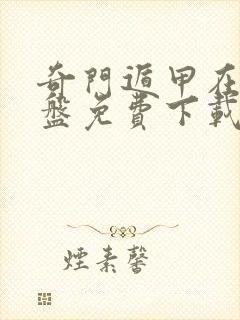 奇門遁甲在
盤免費下載
煙素馨